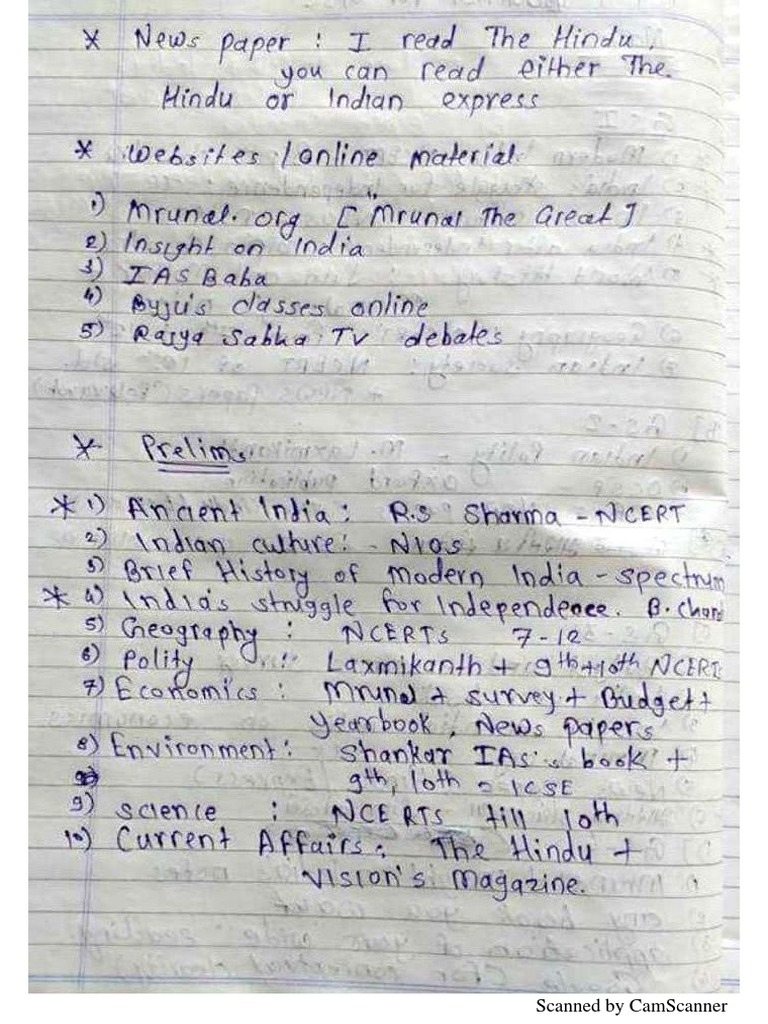 * News paper : I read The Hindu,
you can read either The
Hindu or Indian express
* Websites / online material
1) Mrunal.org ["Mrunal The Great]
2) Insight on India
3) IAS Baba
4) Byju's classes online
5) Rajya Sabha TV debates
* Prelims
* 1) Ancient India : R.S Sharma - NCERT
2) Indian culture : - NIOS
3) Brief History of Modern India - spectrum
* 4) India's struggle for Independence. B. Chand
5) Geography : NCERTs 7-12
6) Polity : Laxmikanth + 9th+10th NCERT
7) Economics : Mrunal + survey + Budget +
yearbook, News papers
8) Environment : Shankar IAS's book +
9th, 10th - ICSE
9) Science : NCERTS till 10th
10) Current Affairs : The Hindu +
Vision's Magazine.
Scanned by CamScanner